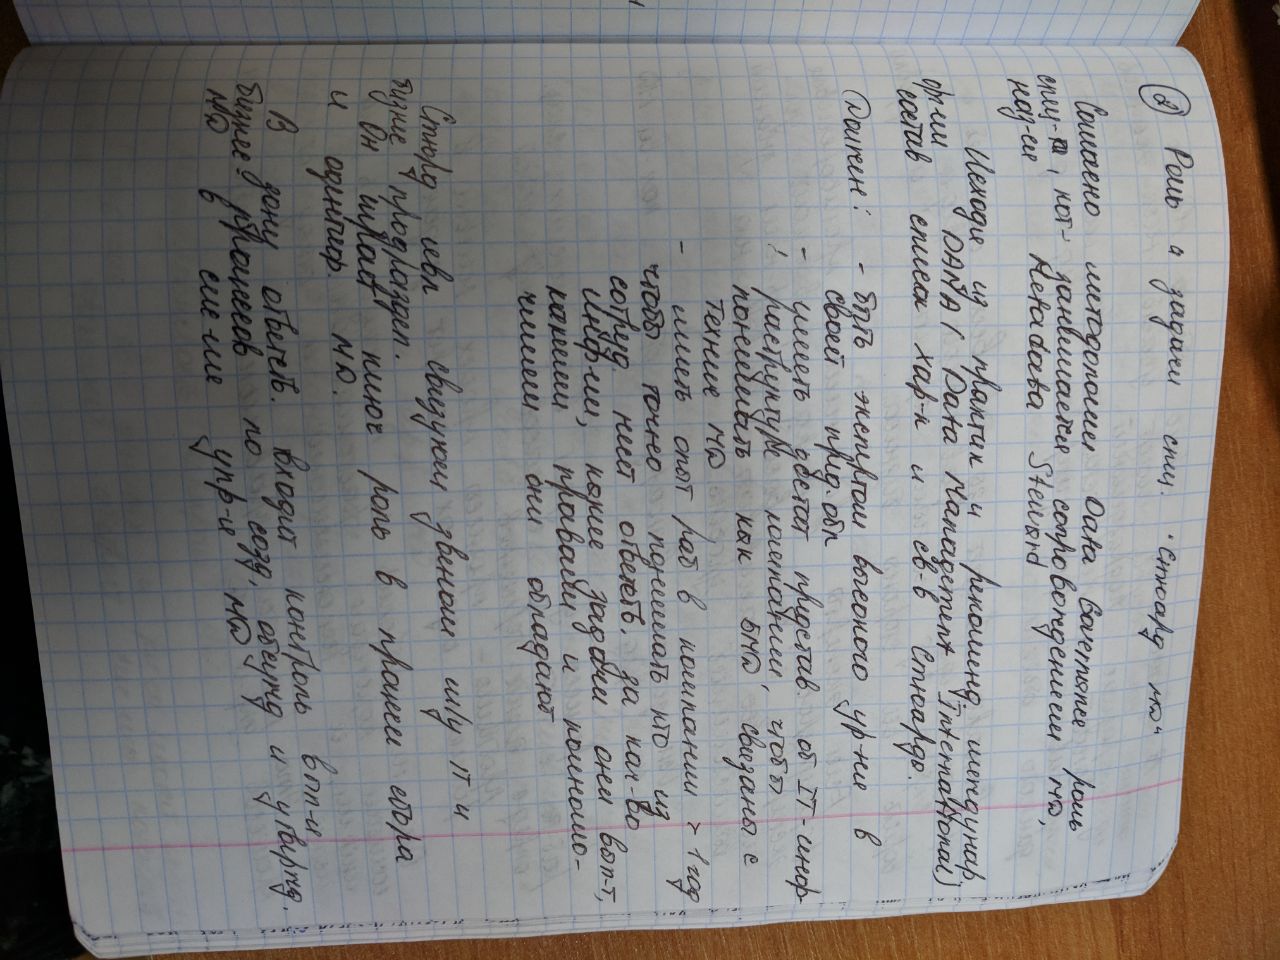 ② Роль и задачи спец. "стюард МД"
Согласно методологии Data Governance роль
спец-а, кот. занимается сопровождением МД,
наз-ся Metadata Steward
Исходя из практик и рекоменд. междунар.
орг-ии DAMA (Data Management International)
состав список хар-к и св-в Стюарда.
Должен: - быть экспертом высокого ур-ня в
своей пред. обл
- иметь детал. представ. об IT-инф-
раструктуре компании, чтобы
понимать как БМД связаны с
технич МД
- иметь опыт раб в компании > 1 год
чтобы точно понимать кто из
сотруд. несёт ответ. за кач-во
инф-ии, какие задачи они вып-т,
какими правами и полномо-
чиями они обладают
Стюард явл связующ звеном м/у IT и
бизнес подразделен.
Он играет ключ роль в процессе сбора
и идентиф. МД.
В зону ответств. входит контроль вып-я
бизнес процессов по созд, обсужд и утвержд.
МД в сис-ме упр-я МД